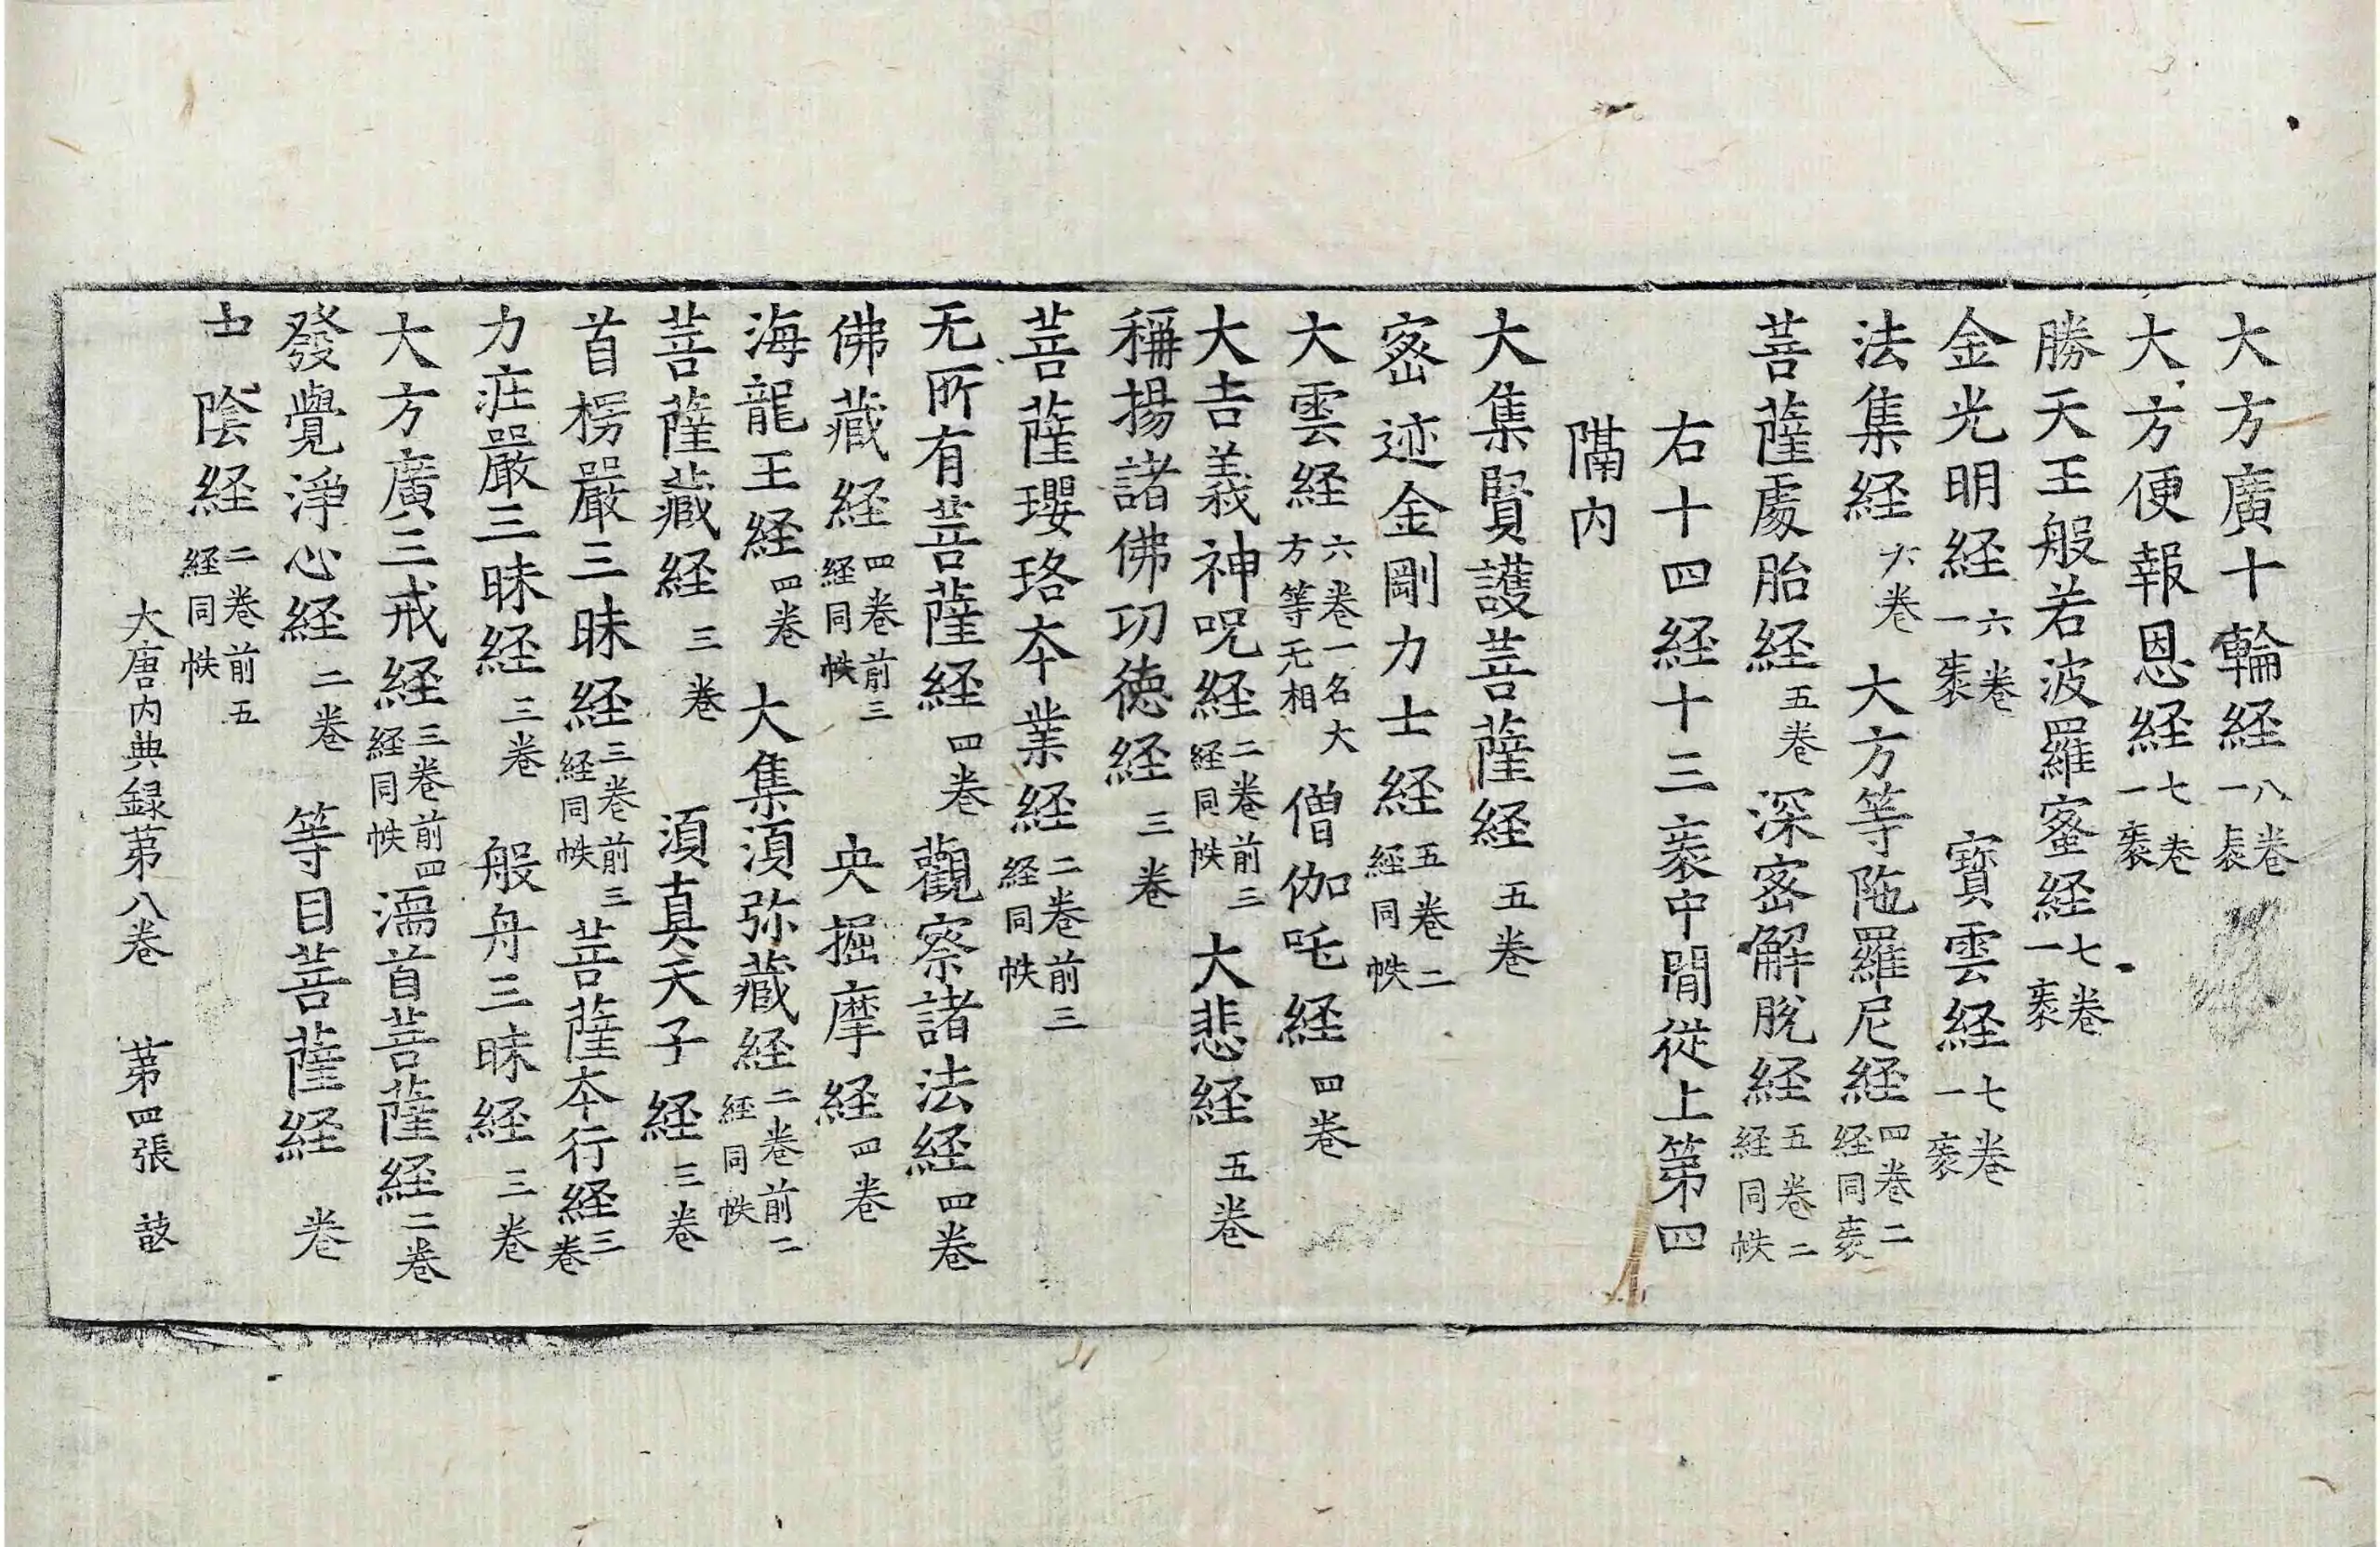 大方廣十輪経八卷一袠
大方便報恩経七卷一袠
勝天王般若波羅蜜経七卷一袠
金光明経六卷一袠 寶雲経七卷一袠
法集経六卷 大方等陁羅尼経四卷二経同袠
菩薩處胎経五卷 深密解脫経五卷二経同帙
右十四経十三袠中閒從上第四
隔內
大集賢護菩薩経五卷
密迹金剛力士経五卷二経同帙
大雲経六卷一名大方等无相 僧伽吒経四卷
大吉義神呪経二卷前三経同帙 大悲経五卷
稱揚諸佛功德経三卷
菩薩瓔珞夲業経二卷前三経同帙
无所有菩薩経四卷 觀察諸法経四卷
佛藏経四卷前三経同帙 央掘摩経四卷
海龍王経四卷 大集湏弥藏経二卷前二経同帙
菩薩藏経三卷 湏真天子経三卷
首楞嚴三昧経三卷前三経同帙 菩薩夲行経三卷
力荘嚴三昧経三卷 般舟三昧経三卷
大方廣三戒経三卷前四経同帙 濡首菩薩経二卷
發覺淨心経二卷 等目菩薩経 卷
陰経二卷前五経同帙
大唐內典録苐八卷 苐四張